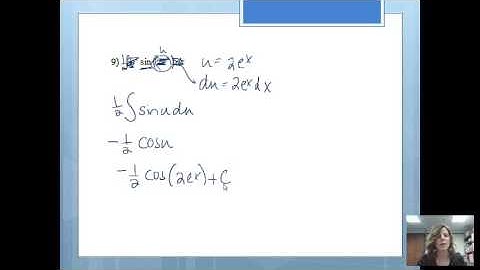 u
9) 1/2 sin
u = 2eˣ
du = 2eˣdx
1/2 ∫ sin u du
-1/2 cos u
-1/2 cos(2eˣ) + C